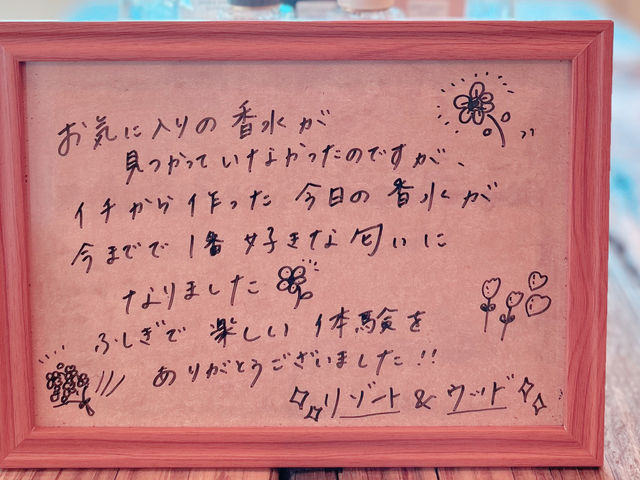 お気に入りの香水が
見つかっていなかったのですが、
イチから作った今日の香水が
今までで1番好きな匂いに
なりました
ふしぎで楽しい体験を
ありがとうございました!!
リゾート&ウッド